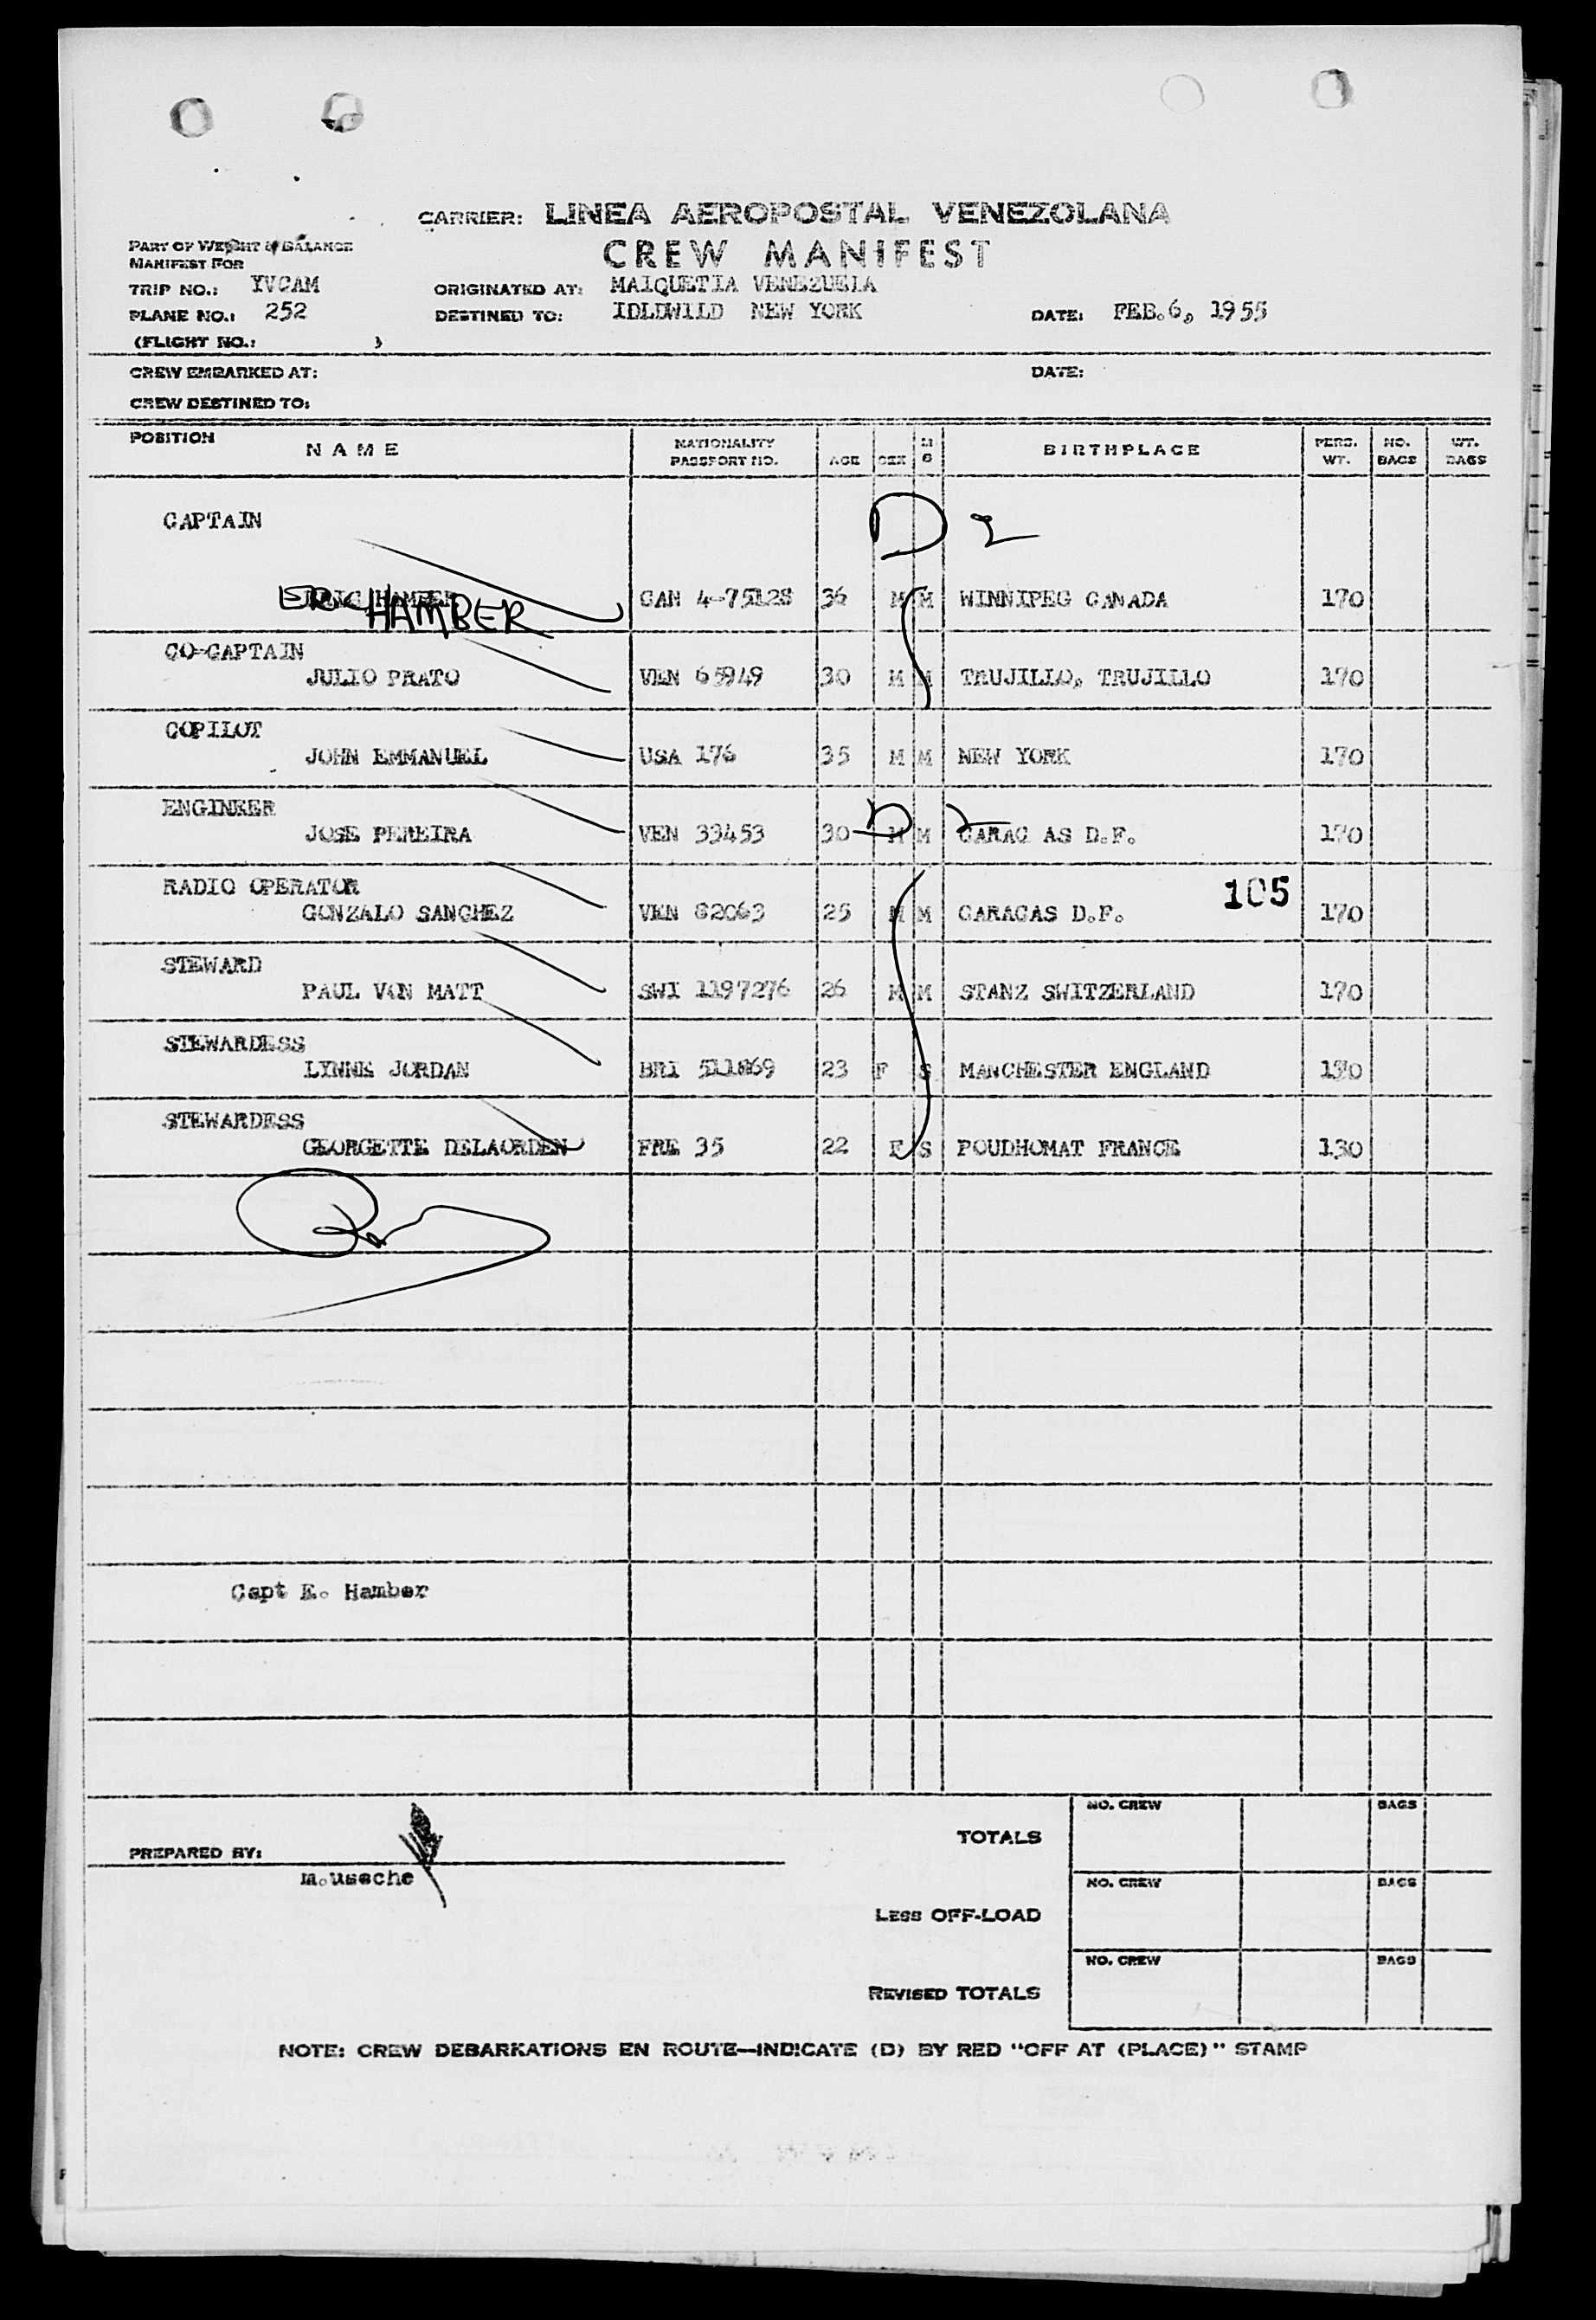 CARRIER: LINEA AEROPOSTAL VENEZOLANA
PART OF WEIGHT & BALANCE
MANIFEST FOR
CREW MANIFEST
TRIP NO.: YVCAM ORIGINATED AT: MAIQUETIA VENEZUELA
PLANE NO.: 252 DESTINED TO: IDLDWILD NEW YORK DATE: FEB.6, 1955
(FLIGHT NO.: )
CREW EMBARKED AT: DATE:
CREW DESTINED TO:
POSITION NAME NATIONALITY PASSPORT NO. AGE SEX M S BIRTHPLACE PERS. WT. NO. BAGS WT. BAGS
CAPTAIN D 2
ERIC HAMBER CAN 4-75128 36 M M WINNIPEG CANADA 170
CO-CAPTAIN
JULIO PRATO VEN 65949 30 M M TRUJILLO, TRUJILLO 170
COPILOT
JOHN EMMANUEL USA 176 35 M M NEW YORK 170
ENGINEER D 2
JOSE PEREIRA VEN 33453 30 M M CARAC AS D.F. 170
RADIO OPERATOR 105
GONZALO SANCHEZ VEN 62063 25 M M CARACAS D.F. 170
STEWARD
PAUL VON MATT SWI 1197276 26 M M STANZ SWITZERLAND 170
STEWARDESS
LYNNE JORDAN BRI 511869 23 F S MANCHESTER ENGLAND 130
STEWARDESS
GEORGETTE DELAORDEN FRE 35 22 F S POUDHOMAT FRANCE 130
Capt E. Hamber
NO. CREW BAGS
TOTALS
PREPARED BY:
m.ussche
NO. CREW BAGS
LESS OFF-LOAD
NO. CREW BAGS
REVISED TOTALS
NOTE: CREW DEBARKATIONS EN ROUTE—INDICATE (D) BY RED "OFF AT (PLACE)" STAMP